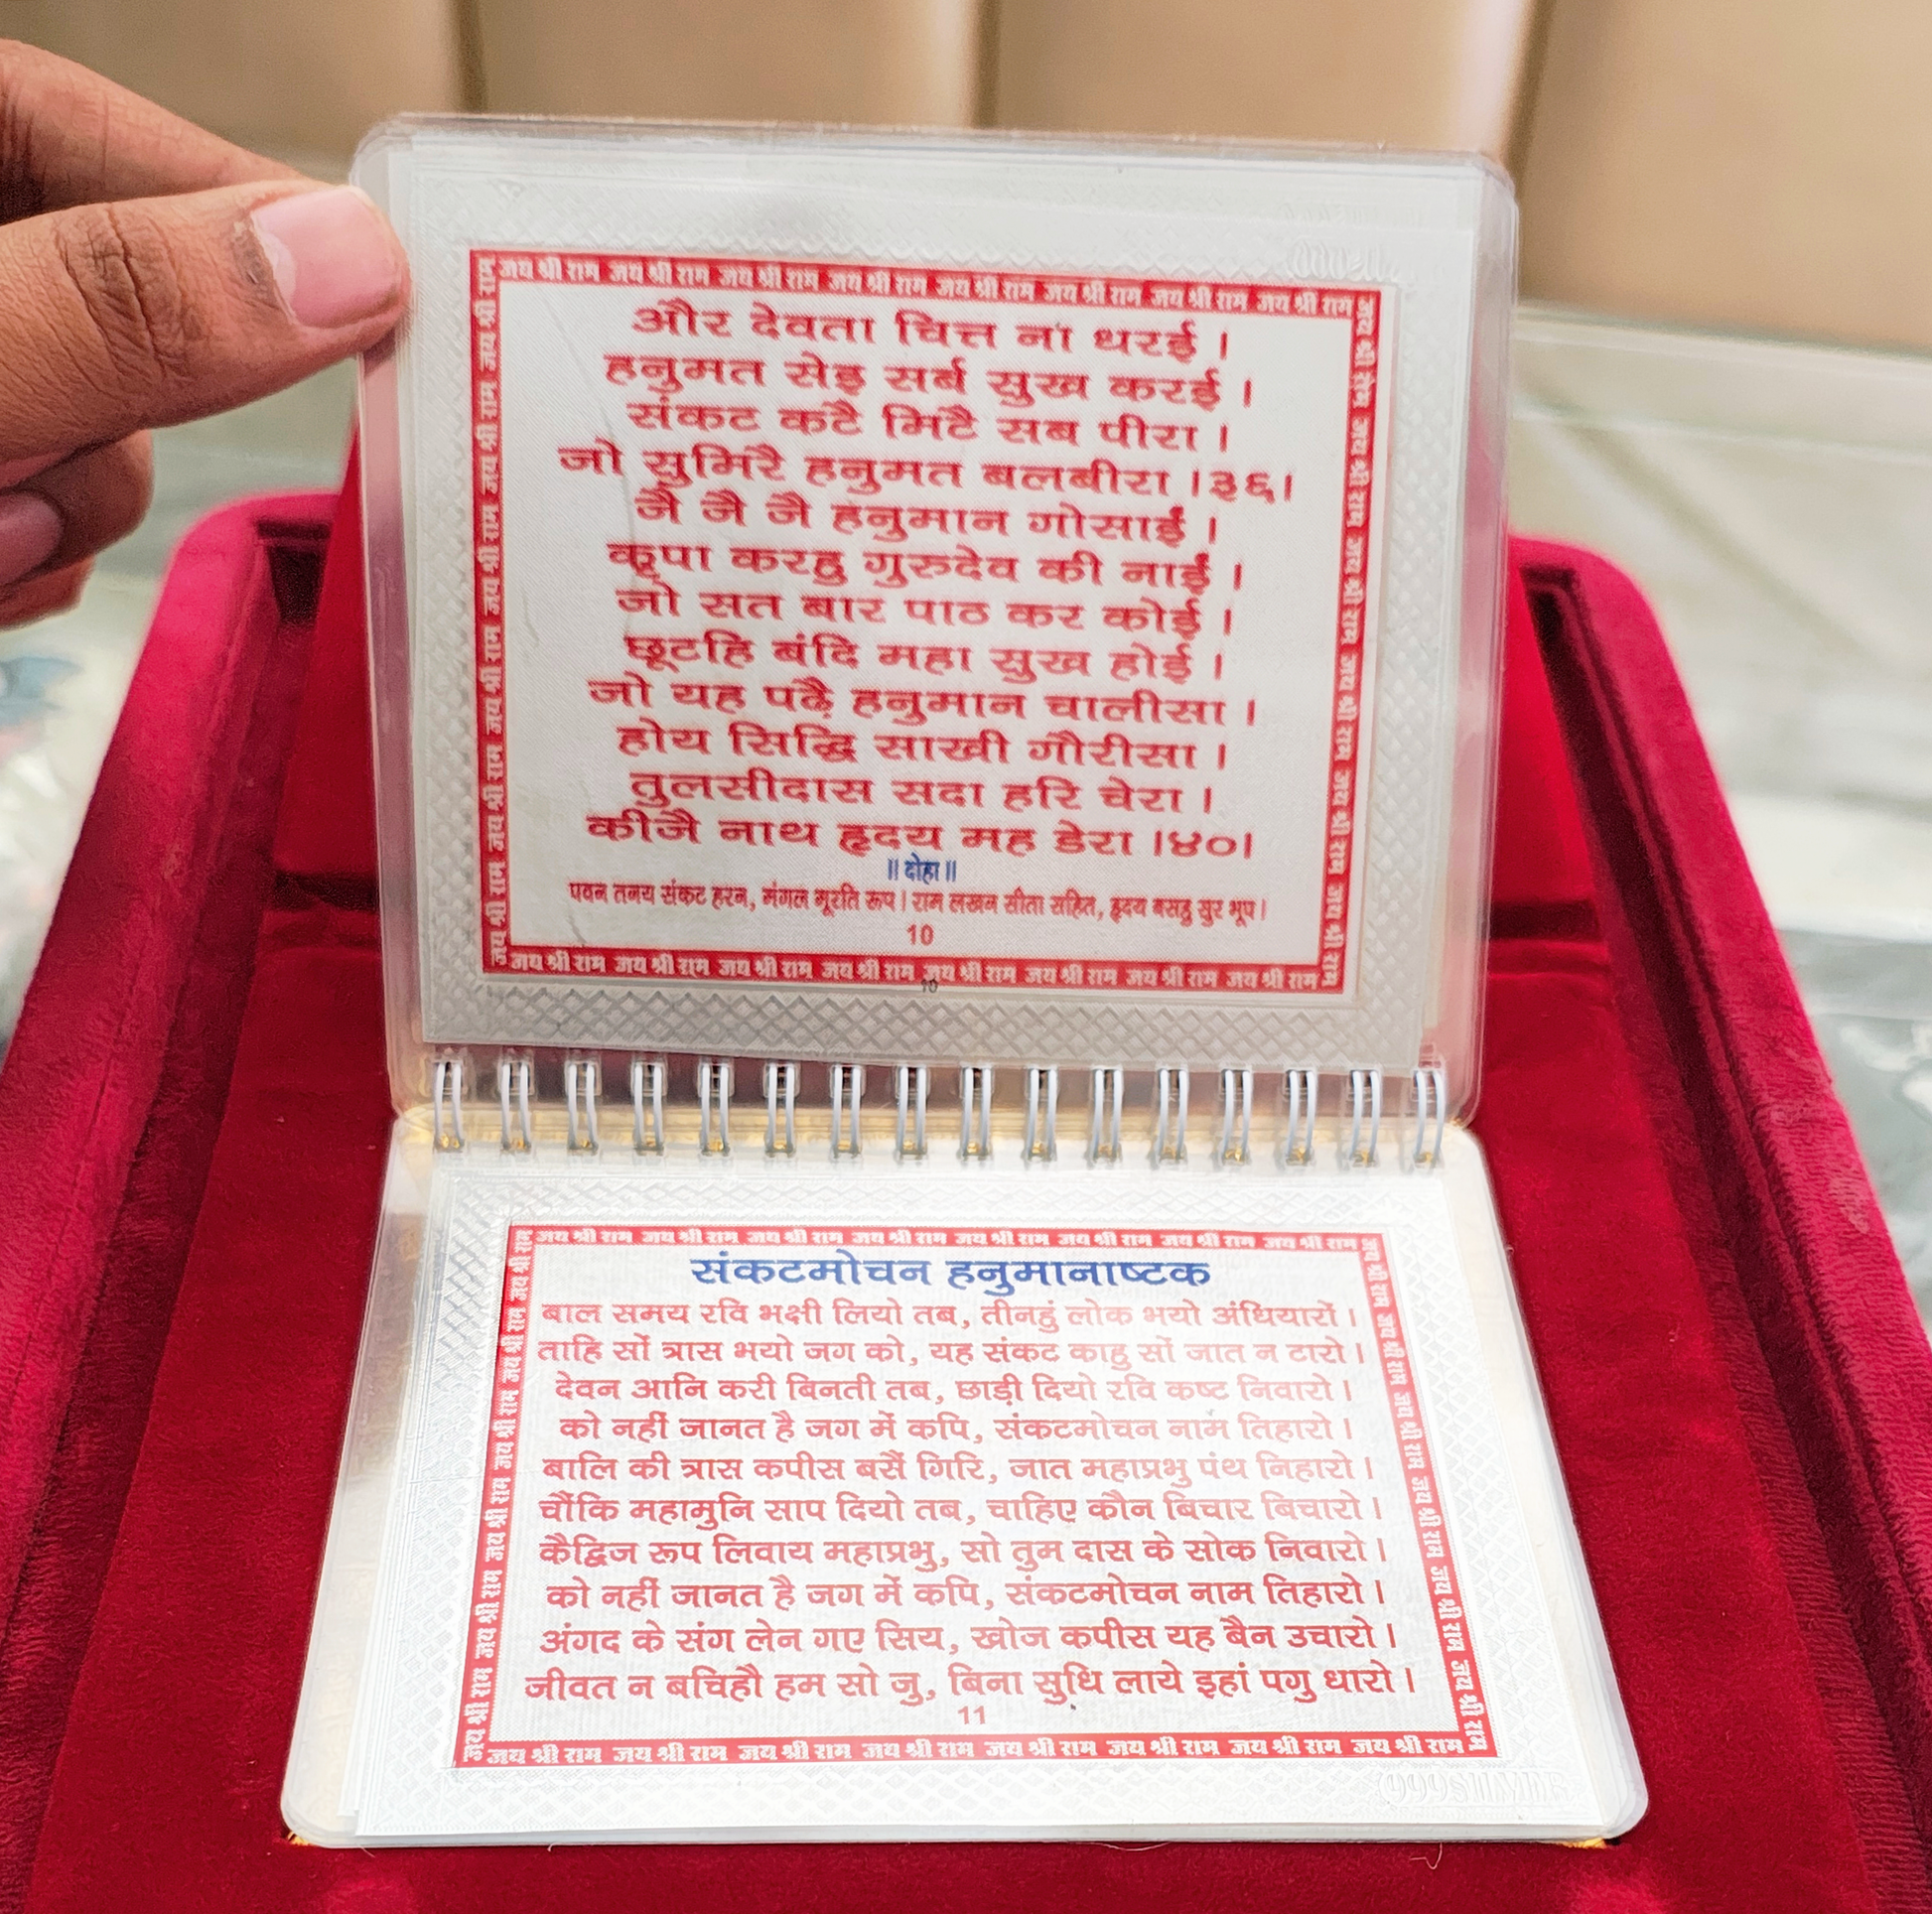 जय श्री राम जय श्री राम जय श्री राम जय श्री राम जय श्री राम जय श्री राम जय श्री राम जय श्री राम
और देवता चित्त ना धरई ।
हनुमत सेइ सर्ब सुख करई ।
संकट कटै मिटै सब पीरा ।
जो सुमिरै हनुमत बलबीरा ।३६।
जै जै जै हनुमान गोसाईं ।
कृपा करहु गुरुदेव की नाईं ।
जो सत बार पाठ कर कोई ।
छूटहि बंदि महा सुख होई ।
जो यह पढ़ै हनुमान चालीसा ।
होय सिद्धि साखी गौरीसा ।
तुलसीदास सदा हरि चेरा ।
कीजै नाथ हृदय मह डेरा ।४०।
॥ दोहा ॥
पवन तनय संकट हरन, मंगल मूरति रूप । राम लखन सीता सहित, हृदय बसहु सुर भूप ।
10
जय श्री राम जय श्री राम जय श्री राम जय श्री राम जय श्री राम जय श्री राम जय श्री राम जय श्री राम
10
जय श्री राम जय श्री राम जय श्री राम जय श्री राम जय श्री राम जय श्री राम जय श्री राम जय श्री राम
संकटमोचन हनुमानाष्टक
बाल समय रवि भक्षी लियो तब, तीनहुं लोक भयो अंधियारों ।
ताहि सों त्रास भयो जग को, यह संकट काहु सों जात न टारो ।
देवन आनि करी बिनती तब, छाड़ी दियो रवि कष्ट निवारो ।
को नहीं जानत है जग में कपि, संकटमोचन नाम तिहारो ।
बालि की त्रास कपीस बसैं गिरि, जात महाप्रभु पंथ निहारो ।
चौंकि महामुनि साप दियो तब, चाहिए कौन बिचार बिचारो ।
कैद्विज रूप लिवाय महाप्रभु, सो तुम दास के सोक निवारो ।
को नहीं जानत है जग में कपि, संकटमोचन नाम तिहारो ।
अंगद के संग लेन गए सिय, खोज कपीस यह बैन उचारो ।
जीवत न बचिहौ हम सो जु, बिना सुधि लाये इहां पगु धारो ।
11
जय श्री राम जय श्री राम जय श्री राम जय श्री राम जय श्री राम जय श्री राम जय श्री राम जय श्री राम
999 SILVER